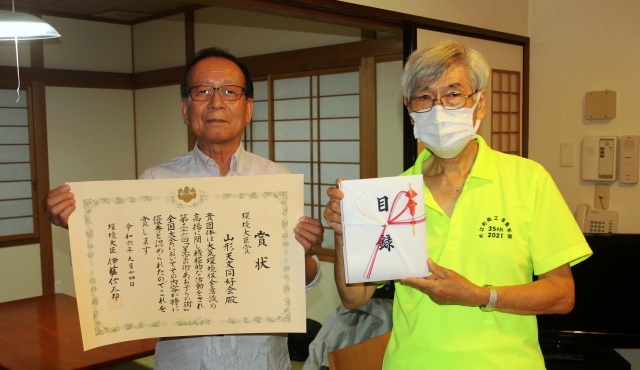 環境大臣賞
賞状
山形天文同好会殿
貴団体は大気環境保全意識の
高揚に関し積極的な活動をされ
第三十六回「星空の街・あおぞらの街」
全国大会においてその内容が特に
優秀と認められたのでこれを
賞します
令和六年九月十四日
環境大臣 伊藤信太郎
目録
35th
2021